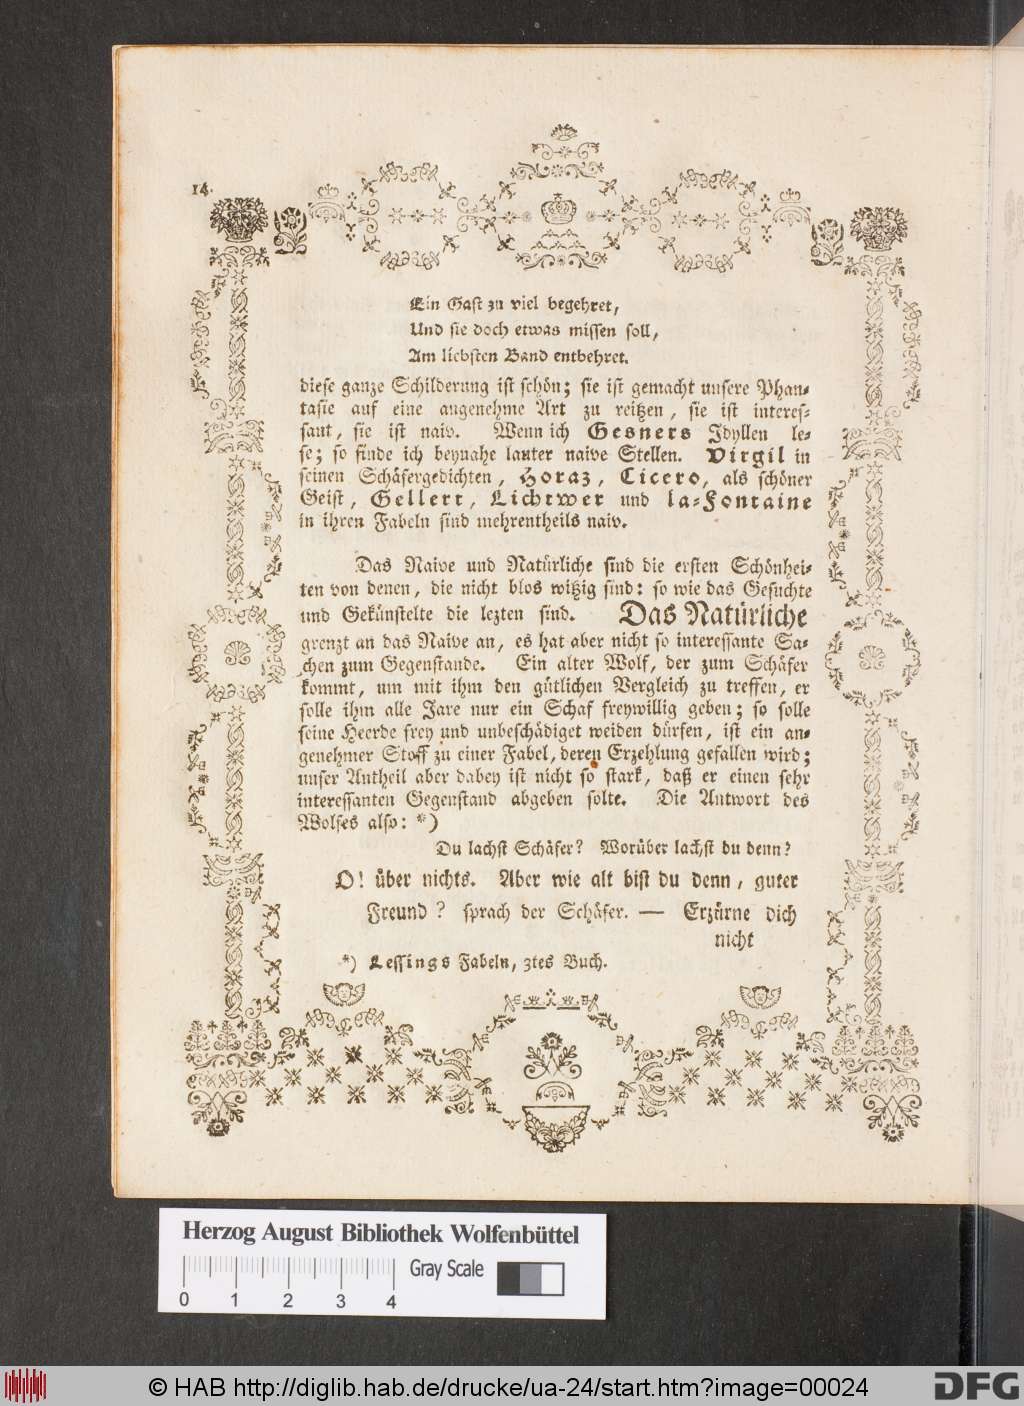 14.
Ein Gast zu viel begehret,
Und sie doch etwas missen soll,
Am liebsten Band entbehret.
diese ganze Schilderung ist schön; sie ist gemacht unsere Phan-
tasie auf eine angenehme Art zu reitzen, sie ist interes-
sant, sie ist naiv. Wenn ich Gesners Idyllen le-
se; so finde ich beynahe lauter naive Stellen. Virgil in
seinen Schäfergedichten, Horaz, Cicero, als schöner
Geist, Gellert, Lichtwer und la-Fontaine
in ihren Fabeln sind mehrentheils naiv.
Das Naive und Natürliche sind die ersten Schönhei-
ten von denen, die nicht blos witzig sind: so wie das Gesuchte
und Gekünstelte die lezten sind. Das Natürliche
grenzt an das Naive an, es hat aber nicht so interessante Sa-
chen zum Gegenstande. Ein alter Wolf, der zum Schäfer
kommt, um mit ihm den gütlichen Vergleich zu treffen, er
solle ihm alle Jare nur ein Schaf freywillig geben; so solle
seine Heerde frey und unbeschädiget weiden dürfen, ist ein an-
genehmer Stoff zu einer Fabel, deren Erzehlung gefallen wird;
unser Antheil aber dabey ist nicht so stark, daß er einen sehr
interessanten Gegenstand abgeben solte. Die Antwort des
Wolfes also: *)
Du lachst Schäfer? Worüber lachst du denn?
O! über nichts. Aber wie alt bist du denn, guter
Freund? sprach der Schäfer. — Erzürne dich
nicht
*) Lessings Fabeln, 3tes Buch.
Herzog August Bibliothek Wolfenbüttel
Gray Scale
0 1 2 3 4
© HAB http://diglib.hab.de/drucke/ua-24/start.htm?image=00024
DFG